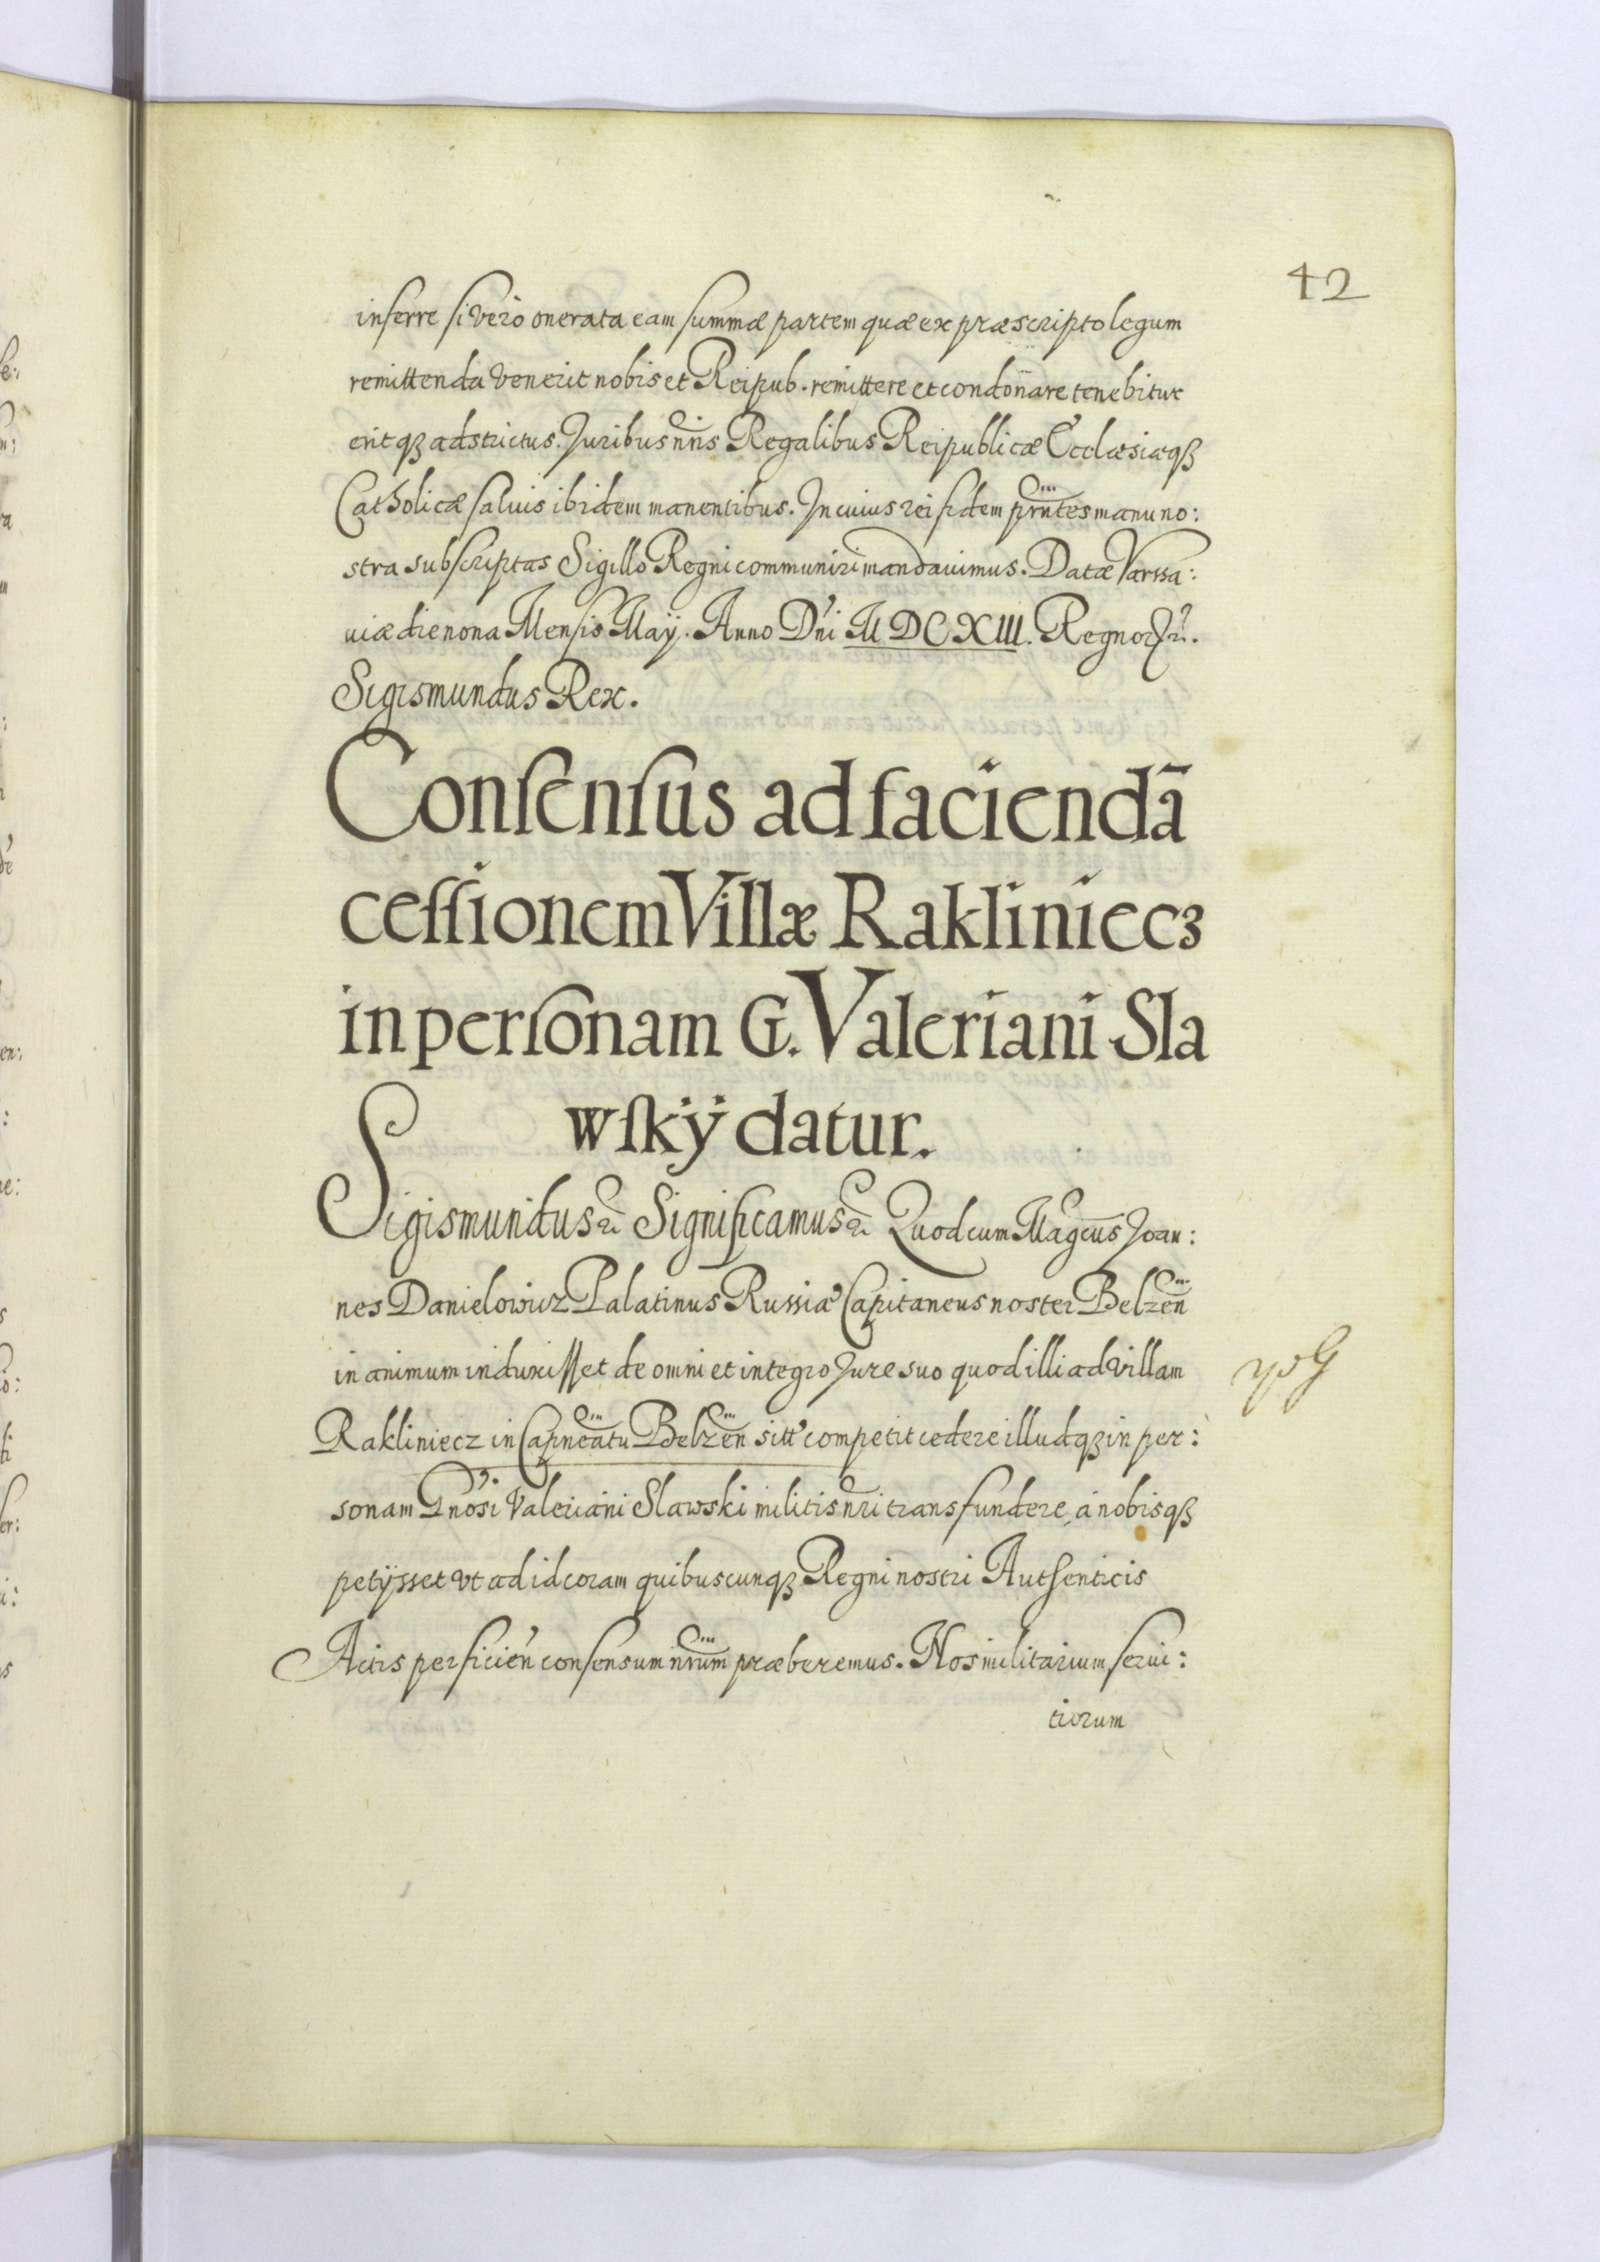 42
inferre si vero onerata eam summæ partem quæ ex præscripto legum
remittenda venerit nobis et Reipub. remittere et condonare tenebitur
eritqꝫ adstrictus. Juribus nr̃is Regalibus Reipublicæ Ecclæsiæqꝫ
Catholicæ salvis ibidem manentibus. In cuius rei fidem pr̃ntes manu no:
stra subscriptas Sigillo Regni communiri mandavimus. Datæ Varssa:
viæ die nona Mensis Maij. Anno Dn̄i M DC XIII. Regnor
Sigismundus Rex.
Consensus ad faciendā
cessionem Villæ Rakliniecz
in personam G. Valeriani Sla
wskÿ datur.
Sigismundus Significamus Quod cum Magcus Joan:
nes Danielowicz Palatinus Russiæ Capitaneus noster Belzen̄
in animum induxisset de omni et integro Jure suo quod illi ad villam
Rakliniecz in Capneatu Belzen̄ sitt' competit cedere illudqꝫ in per:
sonam Gnosi Valeriani Slawski militis nr̃i transfundere, a nobisqꝫ
petÿsset vt ad id coram quibuscunqꝫ Regni nostri Authenticis
Actis perficien̄ consensum nr̃um præberemus. Nos militarium servi:
tiorum